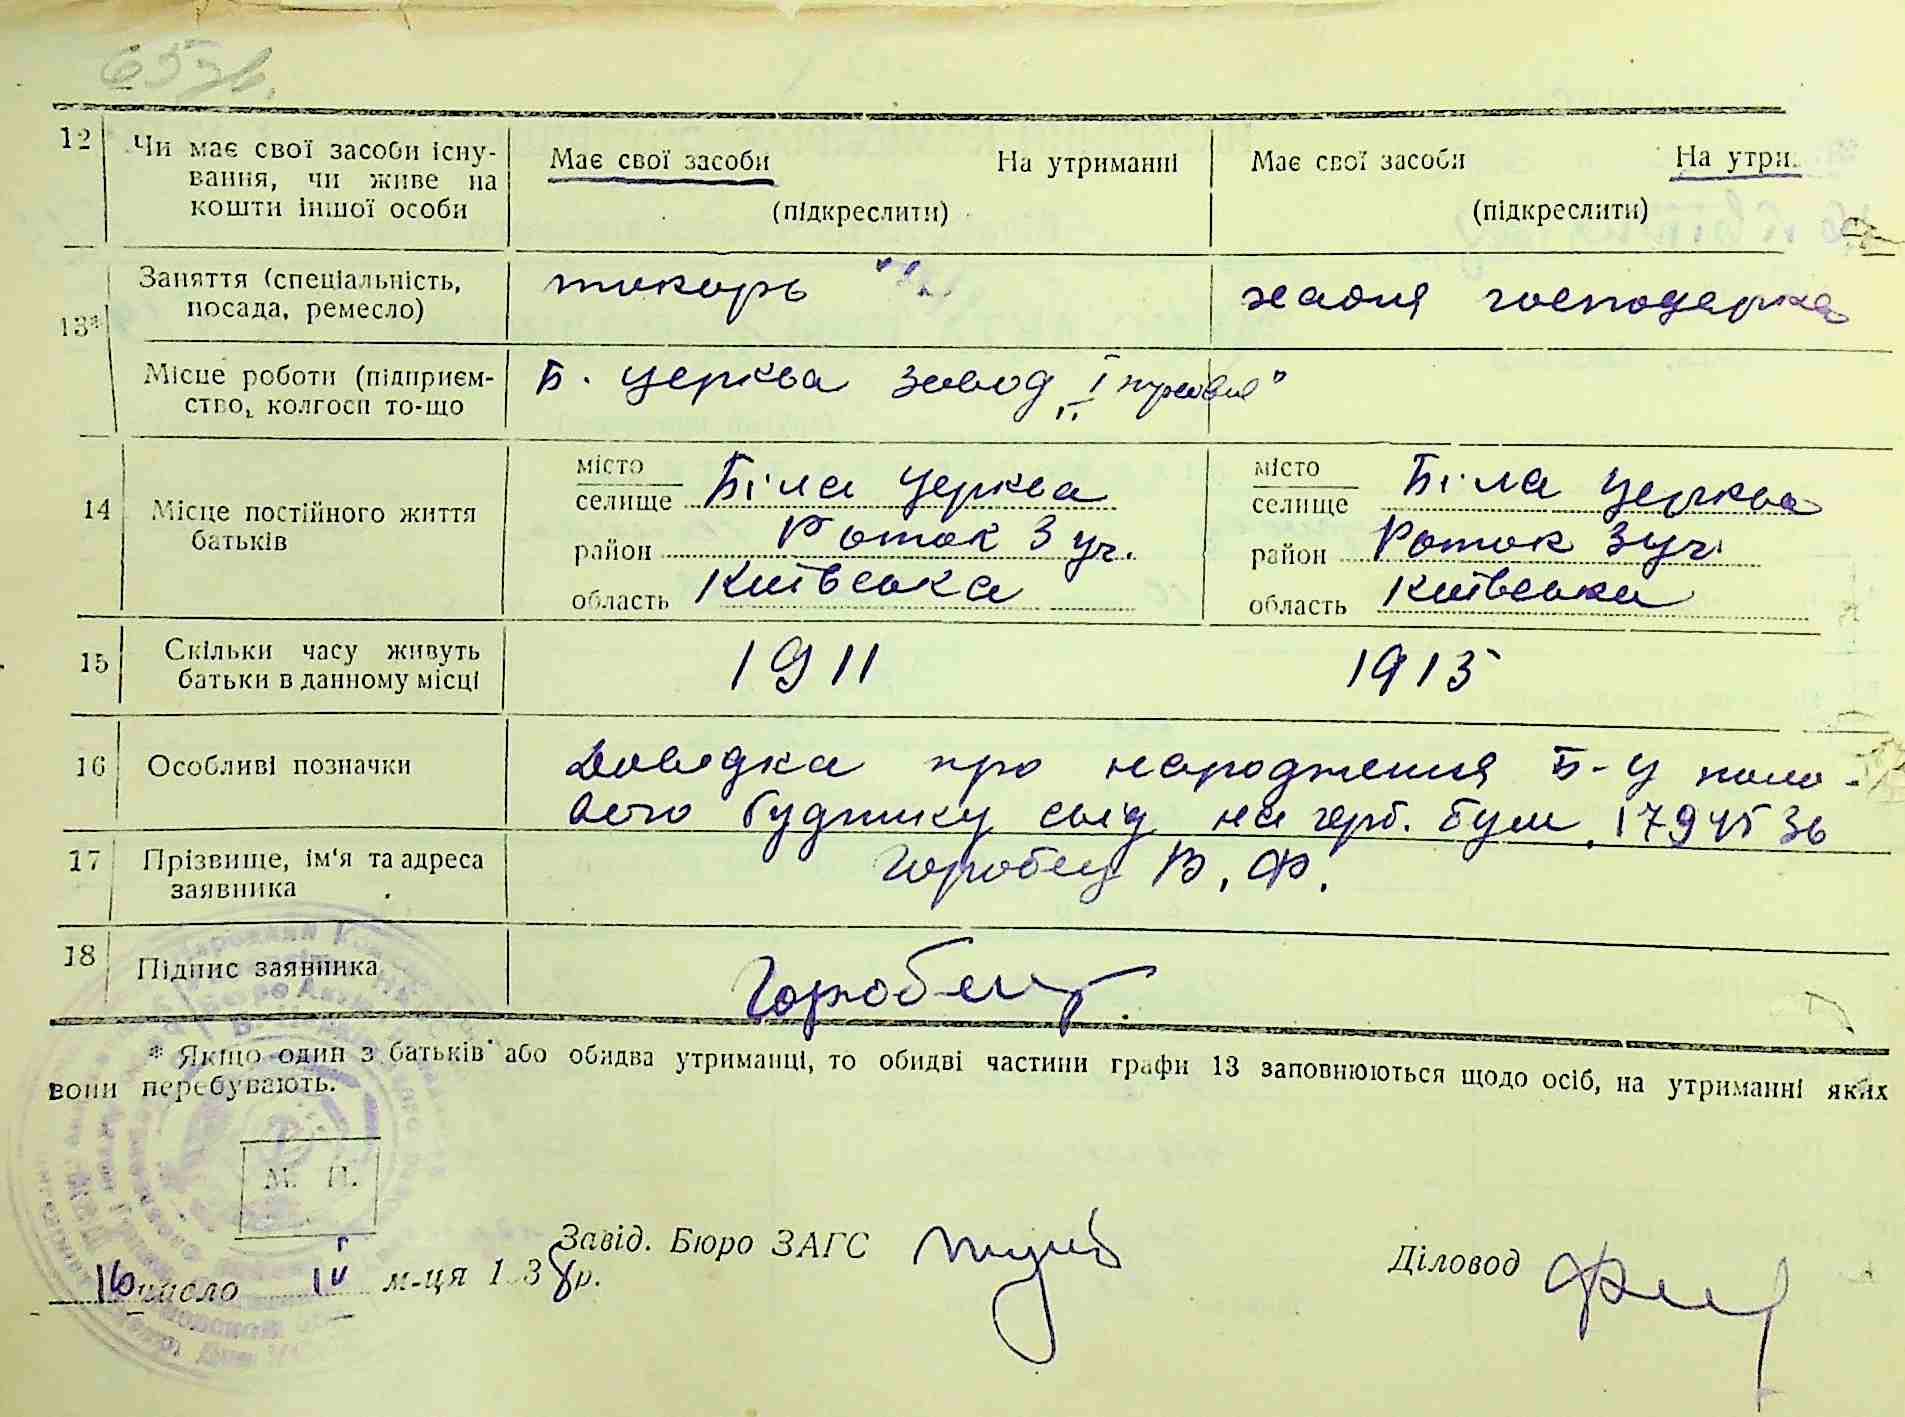 12
Чи має свої засоби існу-
вання, чи живе на
кошти іншої особи
Має свої засоби На утриманні
(підкреслити)
Має свої засоби На утри
(підкреслити)
13*
Заняття (спеціальність,
посада, ремесло)
токорь
хатня господарка
Місце роботи (підприєм-
ство, колгосп то-що
Б. Церква завод „І травня"
14
Місце постійного життя
батьків
місто
селище Біла Церква
район Роток 3 уч.
область Київська
місто
селище Біла Церква
район Роток 3 уч.
область Київська
15
Скільки часу живуть
батьки в данному місці
1911
1915
16
Особливі позначки
Довідка про народження Б-Ц поло-
вого будинку на герб. бум. 179
17
Прізвище, ім'я та адреса
заявника
Горобец В. Ф.
18
Підпис заявника
Горобец
* Якщо один з батьків або обидва утриманці, то обидві частини графи 13 заповнюються щодо осіб, на утриманні яких
вони перебувають.
М. П.
Завід. Бюро ЗАГС
Діловод
16 число IV м-ця 1 38 р.